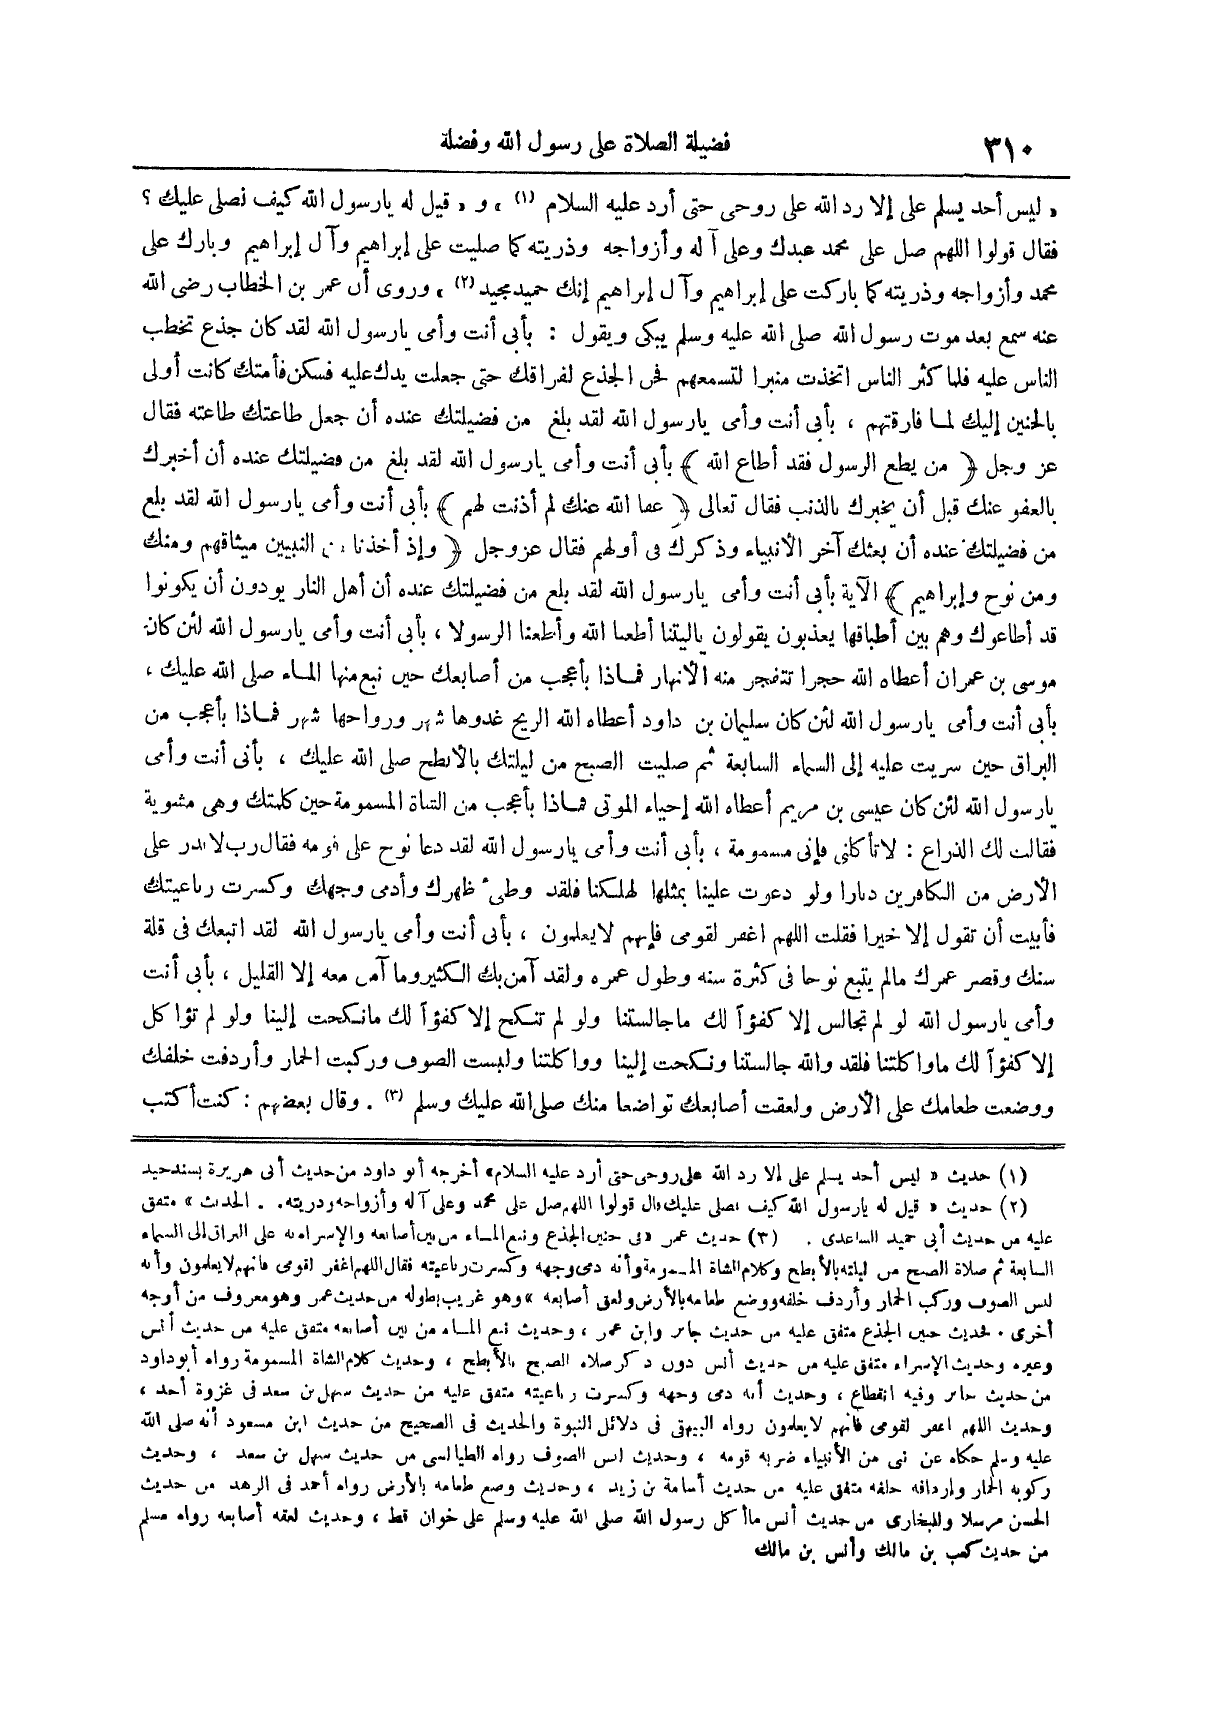 ٣١٠
فضيلة الصلاة على رسول الله وفضله
« ليس أحد يسلم على إلا رد الله على روحى حتى أرد عليه السلام (١) » و « قيل له يارسول الله كيف نصلى عليك ؟
فقال قولوا اللهم صل على محمد عبدك وعلى آله وأزواجه وذريته كما صليت على إبراهيم وآل إبراهيم وبارك على
محمد وأزواجه وذريته كما باركت على إبراهيم وآل إبراهيم إنك حميد مجيد (٢) » وروى أن عمر بن الخطاب رضى الله
عنه سمع بعد موت رسول الله صلى الله عليه وسلم يبكى ويقول : بأبى أنت وأمى يارسول الله لقد كان جذع تخطب
الناس عليه فلما كثر الناس اتخذت منبرا لتسمعهم فحن الجذع لفراقك حتى جعلت يدك عليه فسكن فأمتك كانت أولى
بالحنين إليك لما فارقتهم ، بأبى أنت وأمى يارسول الله لقد بلغ من فضيلتك عنده أن جعل طاعتك طاعته فقال
عز وجل ﴿ من يطع الرسول فقد أطاع الله ﴾ بأبى أنت وأمى يارسول الله لقد بلغ من فضيلتك عنده أن أخبرك
بالعفو عنك قبل أن يخبرك بالذنب فقال تعالى ﴿ عفا الله عنك لم أذنت لهم ﴾ بأبى أنت وأمى يارسول الله لقد بلغ
من فضيلتك عنده أن بعثك آخر الأنبياء وذكرك فى أولهم فقال عزوجل ﴿ وإذ أخذنا من النبيين ميثاقهم ومنك
ومن نوح وإبراهيم ﴾ الآية بأبى أنت وأمى يارسول الله لقد بلغ من فضيلتك عنده أن أهل النار يودون أن يكونوا
قد أطاعوك وهم بين أطباقها يعذبون يقولون ياليتنا أطعنا الله وأطعنا الرسولا ، بأبى أنت وأمى يارسول الله لئن كان
موسى بن عمران أعطاه الله حجرا تتفجر منه الأنهار فماذا بأعجب من أصابعك حين نبع منها الماء صلى الله عليك ،
بأبى أنت وأمى يارسول الله لئن كان سليمان بن داود أعطاه الله الريح غدوها شهر ورواحها شهر فماذا بأعجب من
البراق حين سريت عليه إلى السماء السابعة ثم صليت الصبح من ليلتك بالأبطح صلى الله عليك ، بأبى أنت وأمى
يارسول الله لئن كان عيسى بن مريم أعطاه الله إحياء الموتى فماذا بأعجب من الشاة المسمومة حين كلمتك وهى مشوية
فقالت لك الذراع : لاتأكلنى فإنى مسمومة ، بأبى أنت وأمى يارسول الله لقد دعا نوح على قومه فقال رب لاتذر على
الأرض من الكافرين ديارا ولو دعوت علينا بمثلها لهلكنا فلقد وطىء ظهرك وأدمى وجهك وكسرت رباعيتك
فأبيت أن تقول إلا خيرا فقلت اللهم اغفر لقومى فإنهم لايعلمون ، بأبى أنت وأمى يارسول الله لقد اتبعك فى قلة
سنك وقصر عمرك مالم يتبع نوحا فى كثرة سنه وطول عمره ولقد آمن بك الكثير وما آمن معه إلا القليل ، بأبى أنت
وأمى يارسول الله لو لم تجالس إلا كفؤاً لك ماجالستنا ولو لم تنكح إلا كفؤاً لك مانكحت إلينا ولو لم تؤاكل
إلا كفؤاً لك ماواكلتنا فلقد والله جالستنا ونكحت إلينا وواكلتنا ولبست الصوف وركبت الحمار وأردفت خلفك
ووضعت طعامك على الأرض ولعقت أصابعك تواضعا منك صلى الله عليك وسلم (٣) . وقال بعضهم : كنت أكتب
(١) حديث « ليس أحد يسلم على إلا رد الله على روحى حتى أرد عليه السلام » أخرجه أبو داود من حديث أبى هريرة بسند جيد
(٢) حديث « قيل له يارسول الله كيف نصلى عليك قال قولوا اللهم صل على محمد وعلى آله وأزواجه وذريته . . الحديث » متفق
عليه من حديث أبى حميد الساعدى . (٣) حديث عمر « فى حنين الجذع ونبع الماء من بين أصابعه والإسراء به على البراق إلى السماء
السابعة ثم صلاة الصبح من ليلته بالأبطح وكلام الشاة المسمومة وأنه دمى وجهه وكسرت رباعيته فقال اللهم اغفر لقومى فانهم لايعلمون وأنه
لبس الصوف وركب الحمار وأردف خلفه ووضع طعامه بالأرض ولعق أصابعه » وهو غريب بطوله من حديث عمر وهو معروف من أوجه
أخرى . فحديث حنين الجذع متفق عليه من حديث جابر وابن عمر ، وحديث نبع الماء من بين أصابعه متفق عليه من حديث أنس
وغيره وحديث الإسراء متفق عليه من حديث أنس دون ذكر صلاة الصبح بالأبطح ، وحديث كلام الشاة المسمومة رواه أبو داود
من حديث جابر وفيه انقطاع ، وحديث أنه دمى وجهه وكسرت رباعيته متفق عليه من حديث سهل بن سعد فى غزوة أحد ،
وحديث اللهم اغفر لقومى فانهم لايعلمون رواه البيهقى فى دلائل النبوة والحديث فى الصحيح من حديث ابن مسعود أنه صلى الله
عليه وسلم حكاه عن نبى من الأنبياء ضربه قومه ، وحديث لبس الصوف رواه الطيالسى من حديث سهل بن سعد ، وحديث
ركوبه الحمار وإردافه خلفه متفق عليه من حديث أسامة بن زيد ، وحديث وضع طعامه بالأرض رواه أحمد فى الزهد من حديث
الحسن مرسلا وللبخارى من حديث أنس ماأكل رسول الله صلى الله عليه وسلم على خوان قط ، وحديث لعقه أصابعه رواه مسلم
من حديث كعب بن مالك وأنس بن مالك